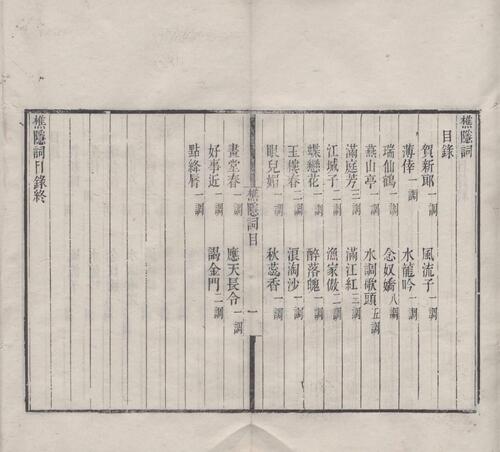 樵隱詞
目錄
賀新郎一調 風流子一調
薄倖一調 水龍吟一調
瑞仙鶴一調 念奴嬌八調
燕山亭一調 水調歌頭五調
滿庭芳三調 滿江紅三調
江城子二調 漁家傲二調
蝶戀花一調 醉落魄一調
玉樓春二調 浪淘沙一調
眼兒媚一調 秋蕊香一調
樵隱詞目 一
畫堂春一調 應天長令一調
好事近一調 謁金門二調
點絳脣一調
樵隱詞目錄終